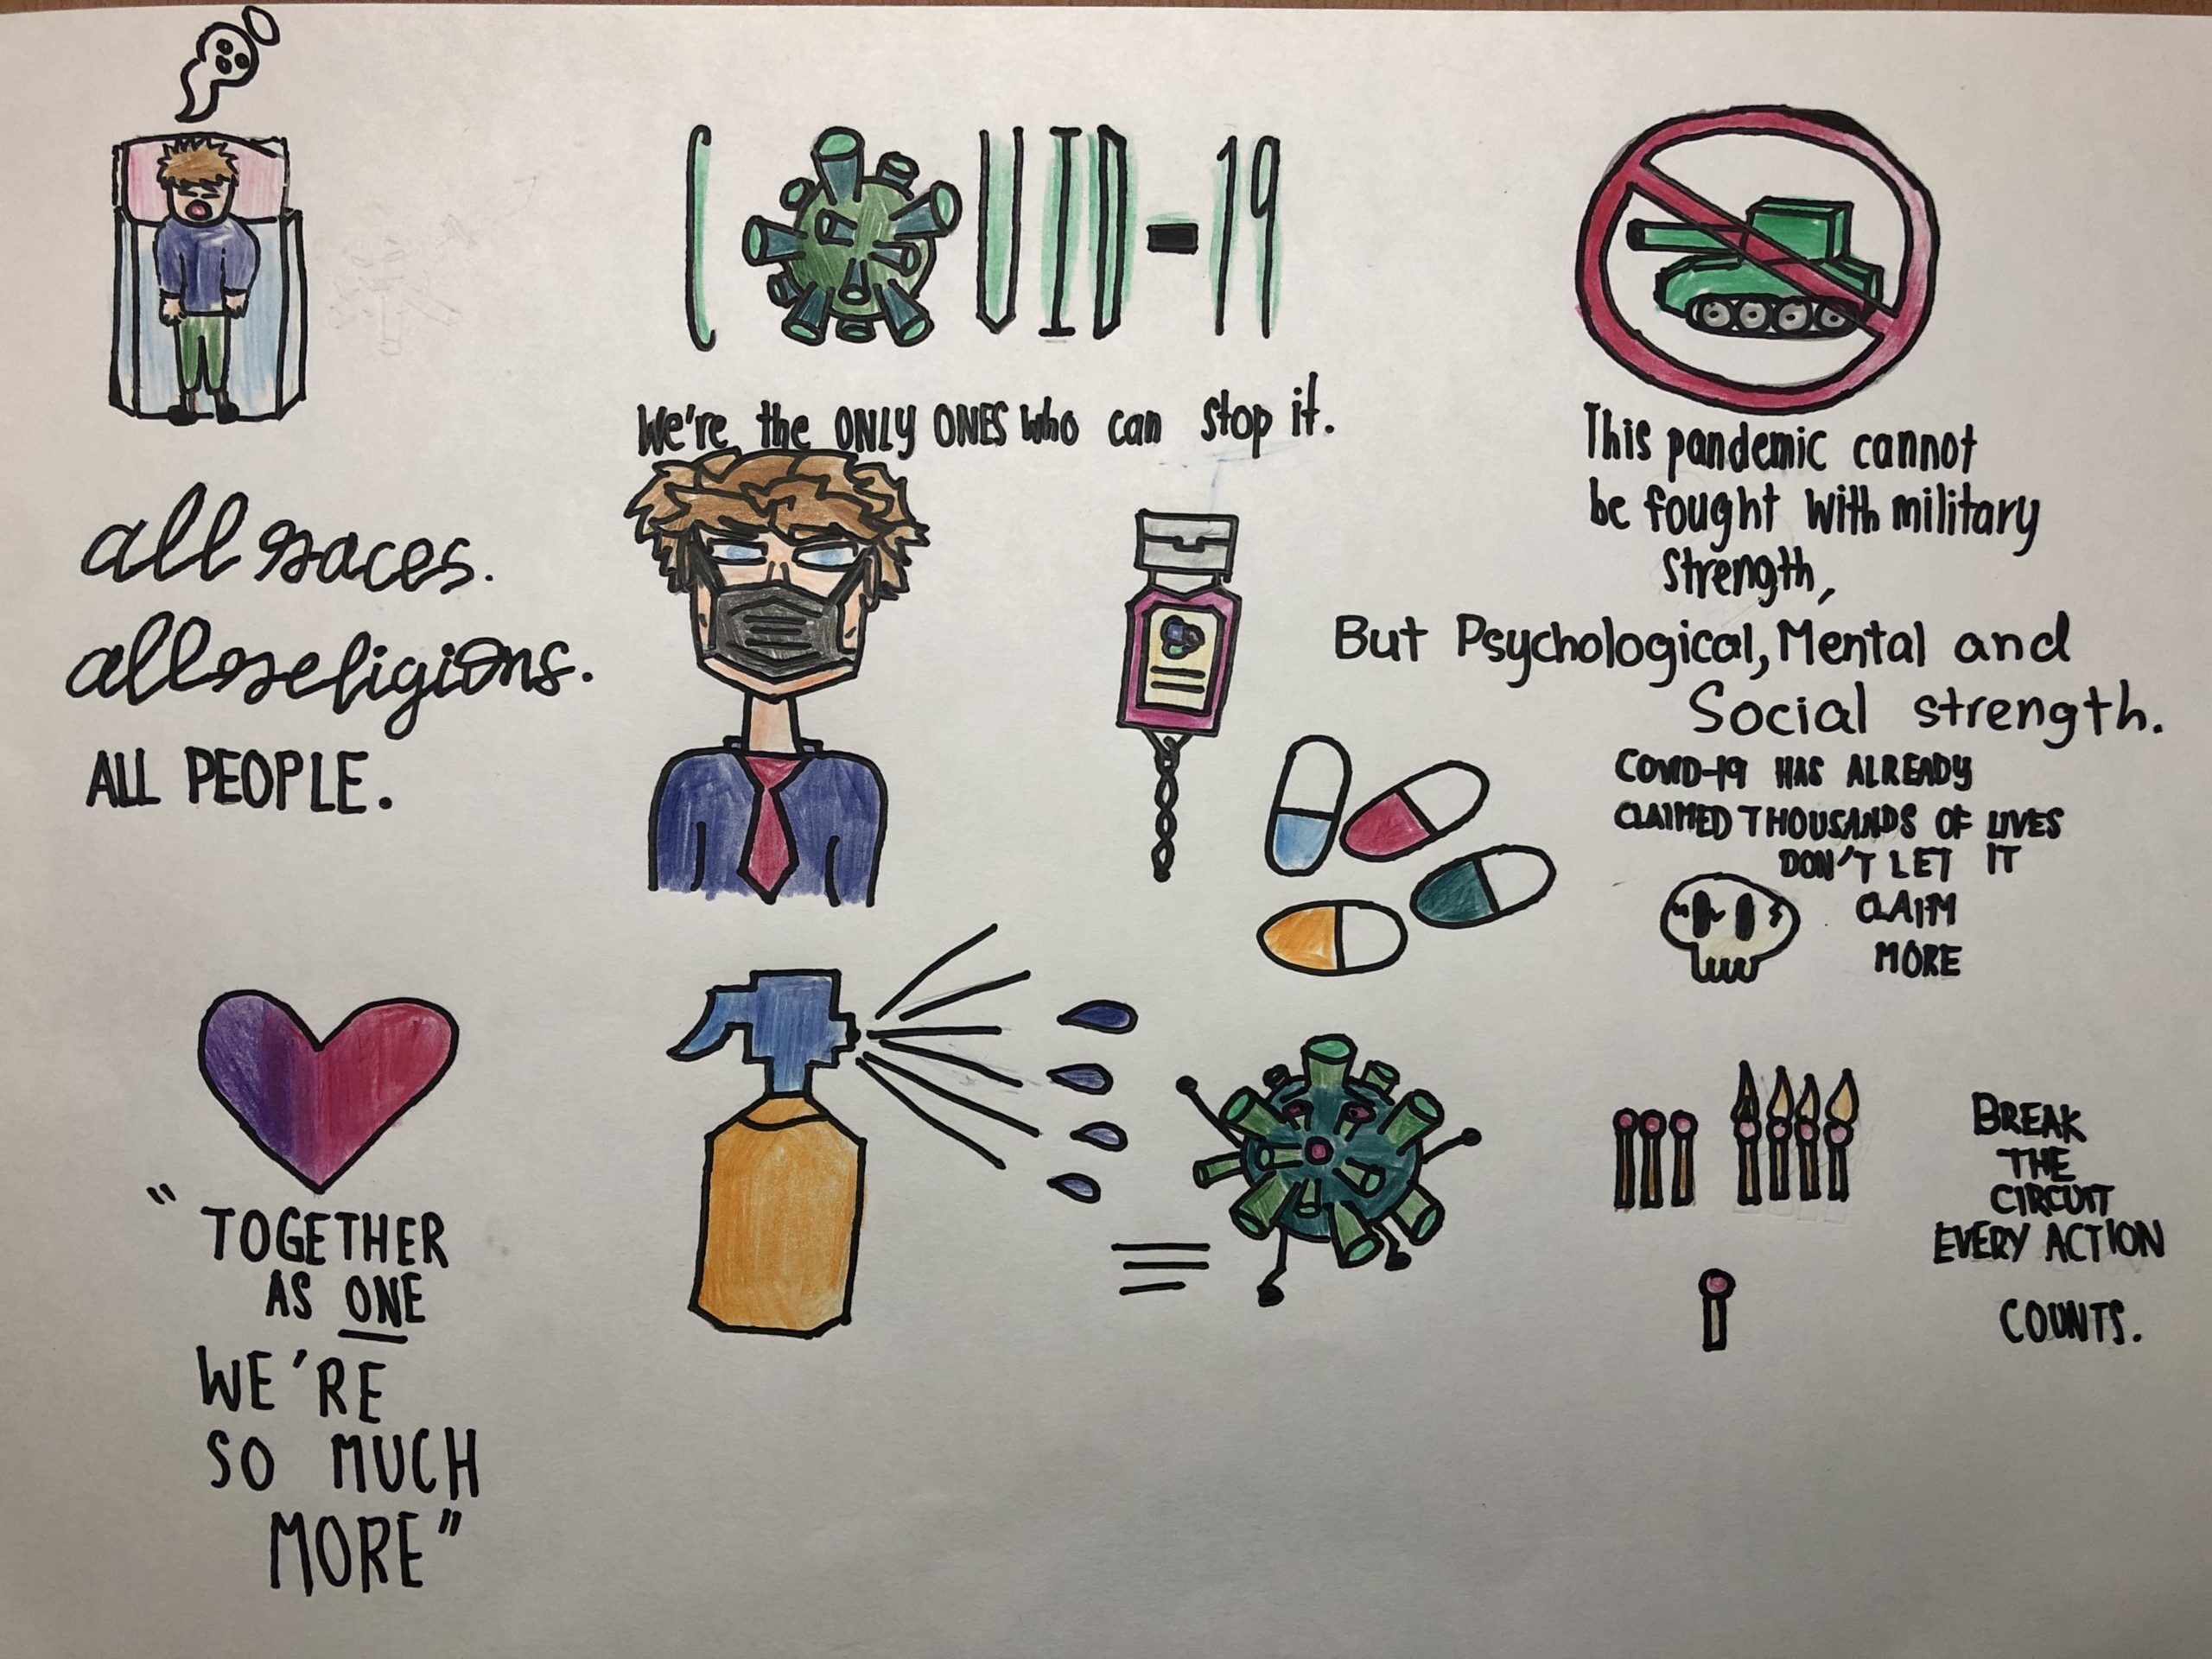 COVID-19
We're the ONLY ONES who can stop it.
all races.
all religions.
ALL PEOPLE.
This pandemic cannot
be fought with military
strength,
But Psychological, Mental and
Social strength.
COVID-19 HAS ALREADY
CLAIMED THOUSANDS OF LIVES
DON'T LET IT
CLAIM
MORE
"TOGETHER
AS ONE
WE'RE
SO MUCH
MORE"
BREAK
THE
CIRCUIT
EVERY ACTION
COUNTS.